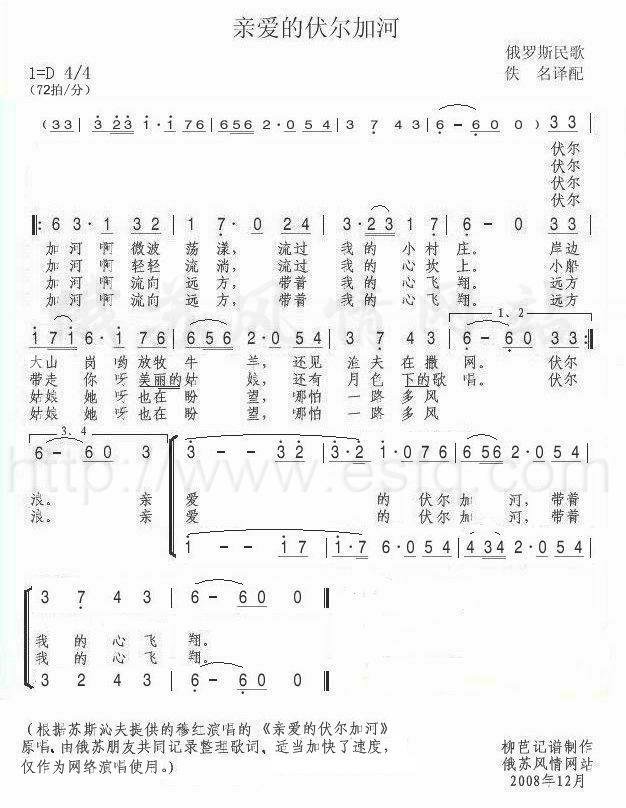 亲爱的伏尔加河
俄罗斯民歌
1=D 4/4
佚 名译配
（72拍/分）
（33 | 3 23 1·1 76 | 656 2·054 | 3 7 43 | 6-600）33 |
伏尔
伏尔
伏尔
伏尔
‖: 6 3·1 32 | 1 7·0 24 | 3·23 1 7 | 6-0 33 |
加河啊微波 荡漾，流过 我的 小村 庄。 岸边
加河啊轻轻 流淌，流过 我的 心坎 上。 小船
加河啊流向 远方，带着 我的 心飞 翔。 远方
加河啊流向 远方，带着 我的 心飞 翔。 远方
1、2
171 6·1 76 | 656 2·054 | 3 7 4 3 | 6-60 33 :‖
大山 岗哟放牧 牛 兰，还见 渔夫在撒 网。 伏尔
带走 你呀美丽的姑 娘，还有 月色 下的歌 唱。 伏尔
姑娘 她呀也在 盼 望，哪怕 一路多风
姑娘 她呀也在 盼 望，哪怕 一路多风
3、4
6-600 3 | 3--32 | 3·2 1·076 | 656 2·054 |
浪。 亲 爱 的 伏尔加 河，带着
浪。 亲 爱 的 伏尔加 河，带着
1--17 | 17·6·054 | 434 2·054 |
3 7 43 | 6-600 ‖
我的心飞 翔。
我的心飞 翔。
3 2 43 | 6-600 ‖
（根据苏斯沁夫提供的穆红演唱的《亲爱的伏尔加河》
原唱、由俄苏朋友共同记录整理歌词、适当加快了速度，
仅作为网络演唱使用。）
柳芭记谱制作
俄苏风情网站
2008年12月